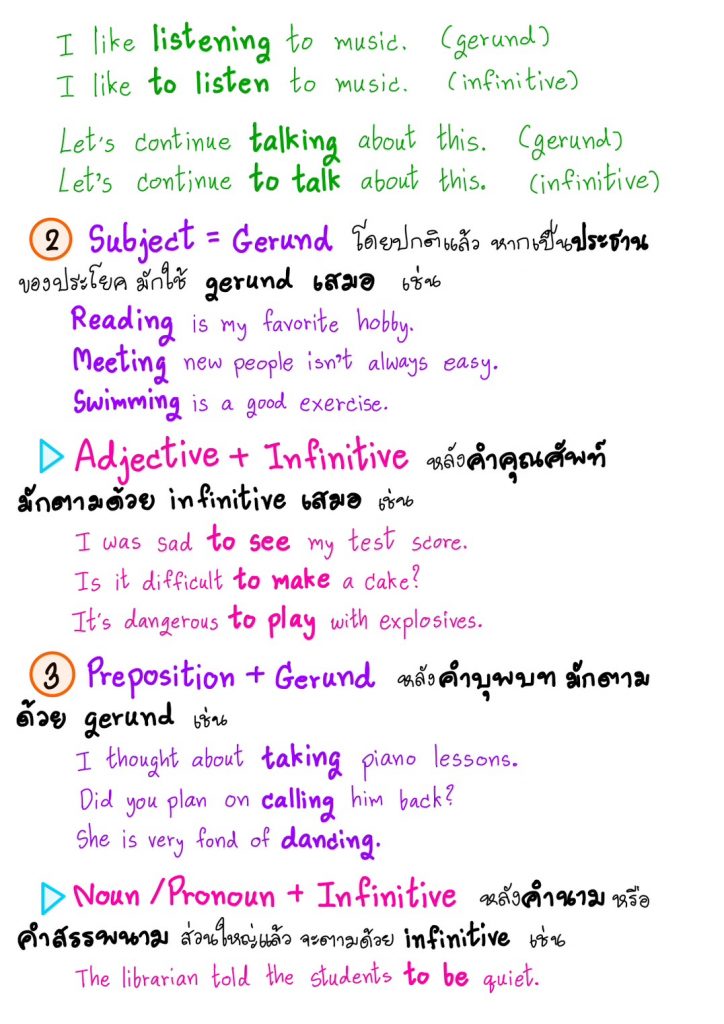 I like listening to music. (gerund)
I like to listen to music. (infinitive)
Let's continue talking about this. (gerund)
Let's continue to talk about this. (infinitive)
2 Subject = Gerund โดยปกติแล้ว หากเป็นประธาน
ของประโยค มักใช้ gerund เสมอ เช่น
Reading is my favorite hobby.
Meeting new people isn't always easy.
Swimming is a good exercise.
Adjective + Infinitive หลังคำคุณศัพท์
มักตามด้วย infinitive เสมอ เช่น
I was sad to see my test score.
Is it difficult to make a cake?
It's dangerous to play with explosives.
3 Preposition + Gerund หลังคำบุพบท มักตาม
ด้วย gerund เช่น
I thought about taking piano lessons.
Did you plan on calling him back?
She is very fond of dancing.
Noun /Pronoun + Infinitive หลังคำนาม หรือ
คำสรรพนาม ส่วนใหญ่แล้ว จะตามด้วย infinitive เช่น
The librarian told the students to be quiet.